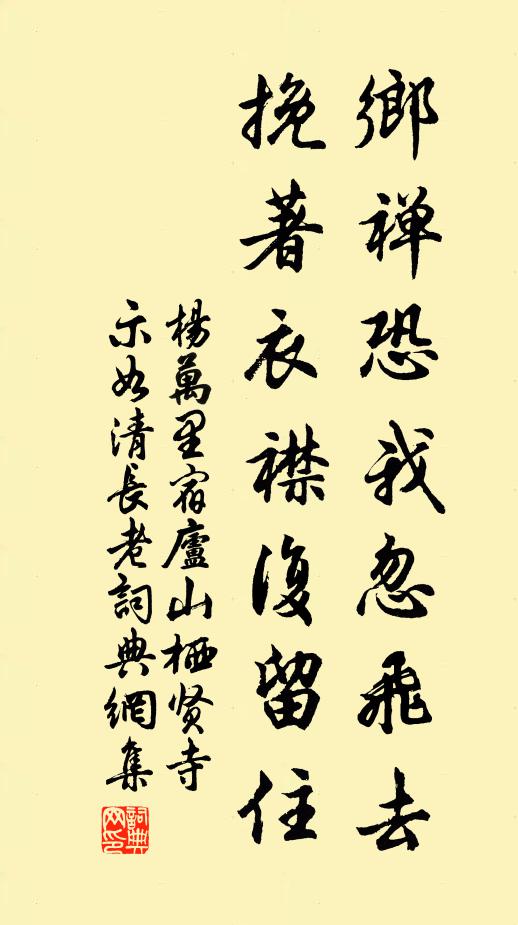 鄉禅恐我忽飛去
挽著衣襟復留住
楊萬里宿廬山栖贤寺
示如清長老詞典網集
詞典網印